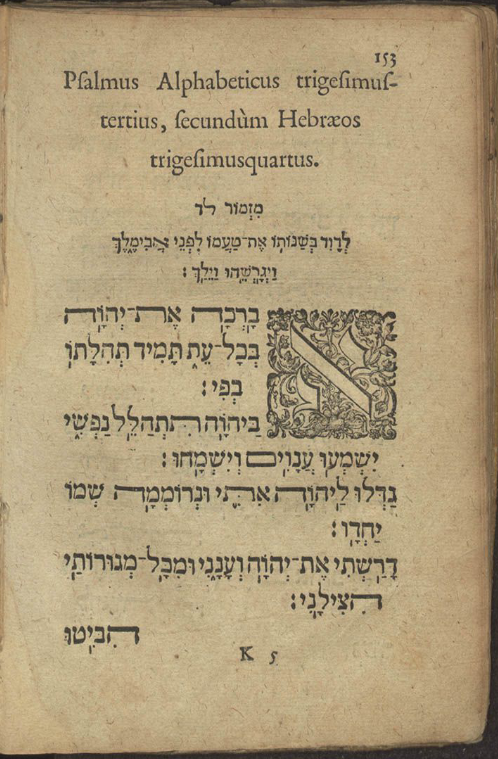 153
Pſalmus Alphabeticus trigeſimuſ-
tertius, ſecundùm Hebræos
trigeſimusquartus.
מִזְמוֹר לד
לְדָוִד בְּשַׁנּוֹתוֹ אֶת־טַעְמוֹ לִפְנֵי אֲבִימֶלֶךְ
וַיְגָרְשֵׁהוּ וַיֵּלַךְ׃
אֲבָרְכָה אֶת־יְהוָֹה
בְּכָל־עֵת תָּמִיד תְּהִלָּתוֹ
בְּפִי׃
בַּיהוָֹה תִּתְהַלֵּל נַפְשִׁי
יִשְׁמְעוּ עֲנָוִים וְיִשְׂמָחוּ׃
גַּדְּלוּ לַיהוָֹה אִתִּי וּנְרוֹמְמָה שְׁמוֹ
יַחְדָּו׃
דָּרַשְׁתִּי אֶת־יְהוָֹה וְעָנָנִי וּמִכָּל־מְגוּרוֹתַי
הִצִּילָנִי׃
הִבִּיטוּ
K 5